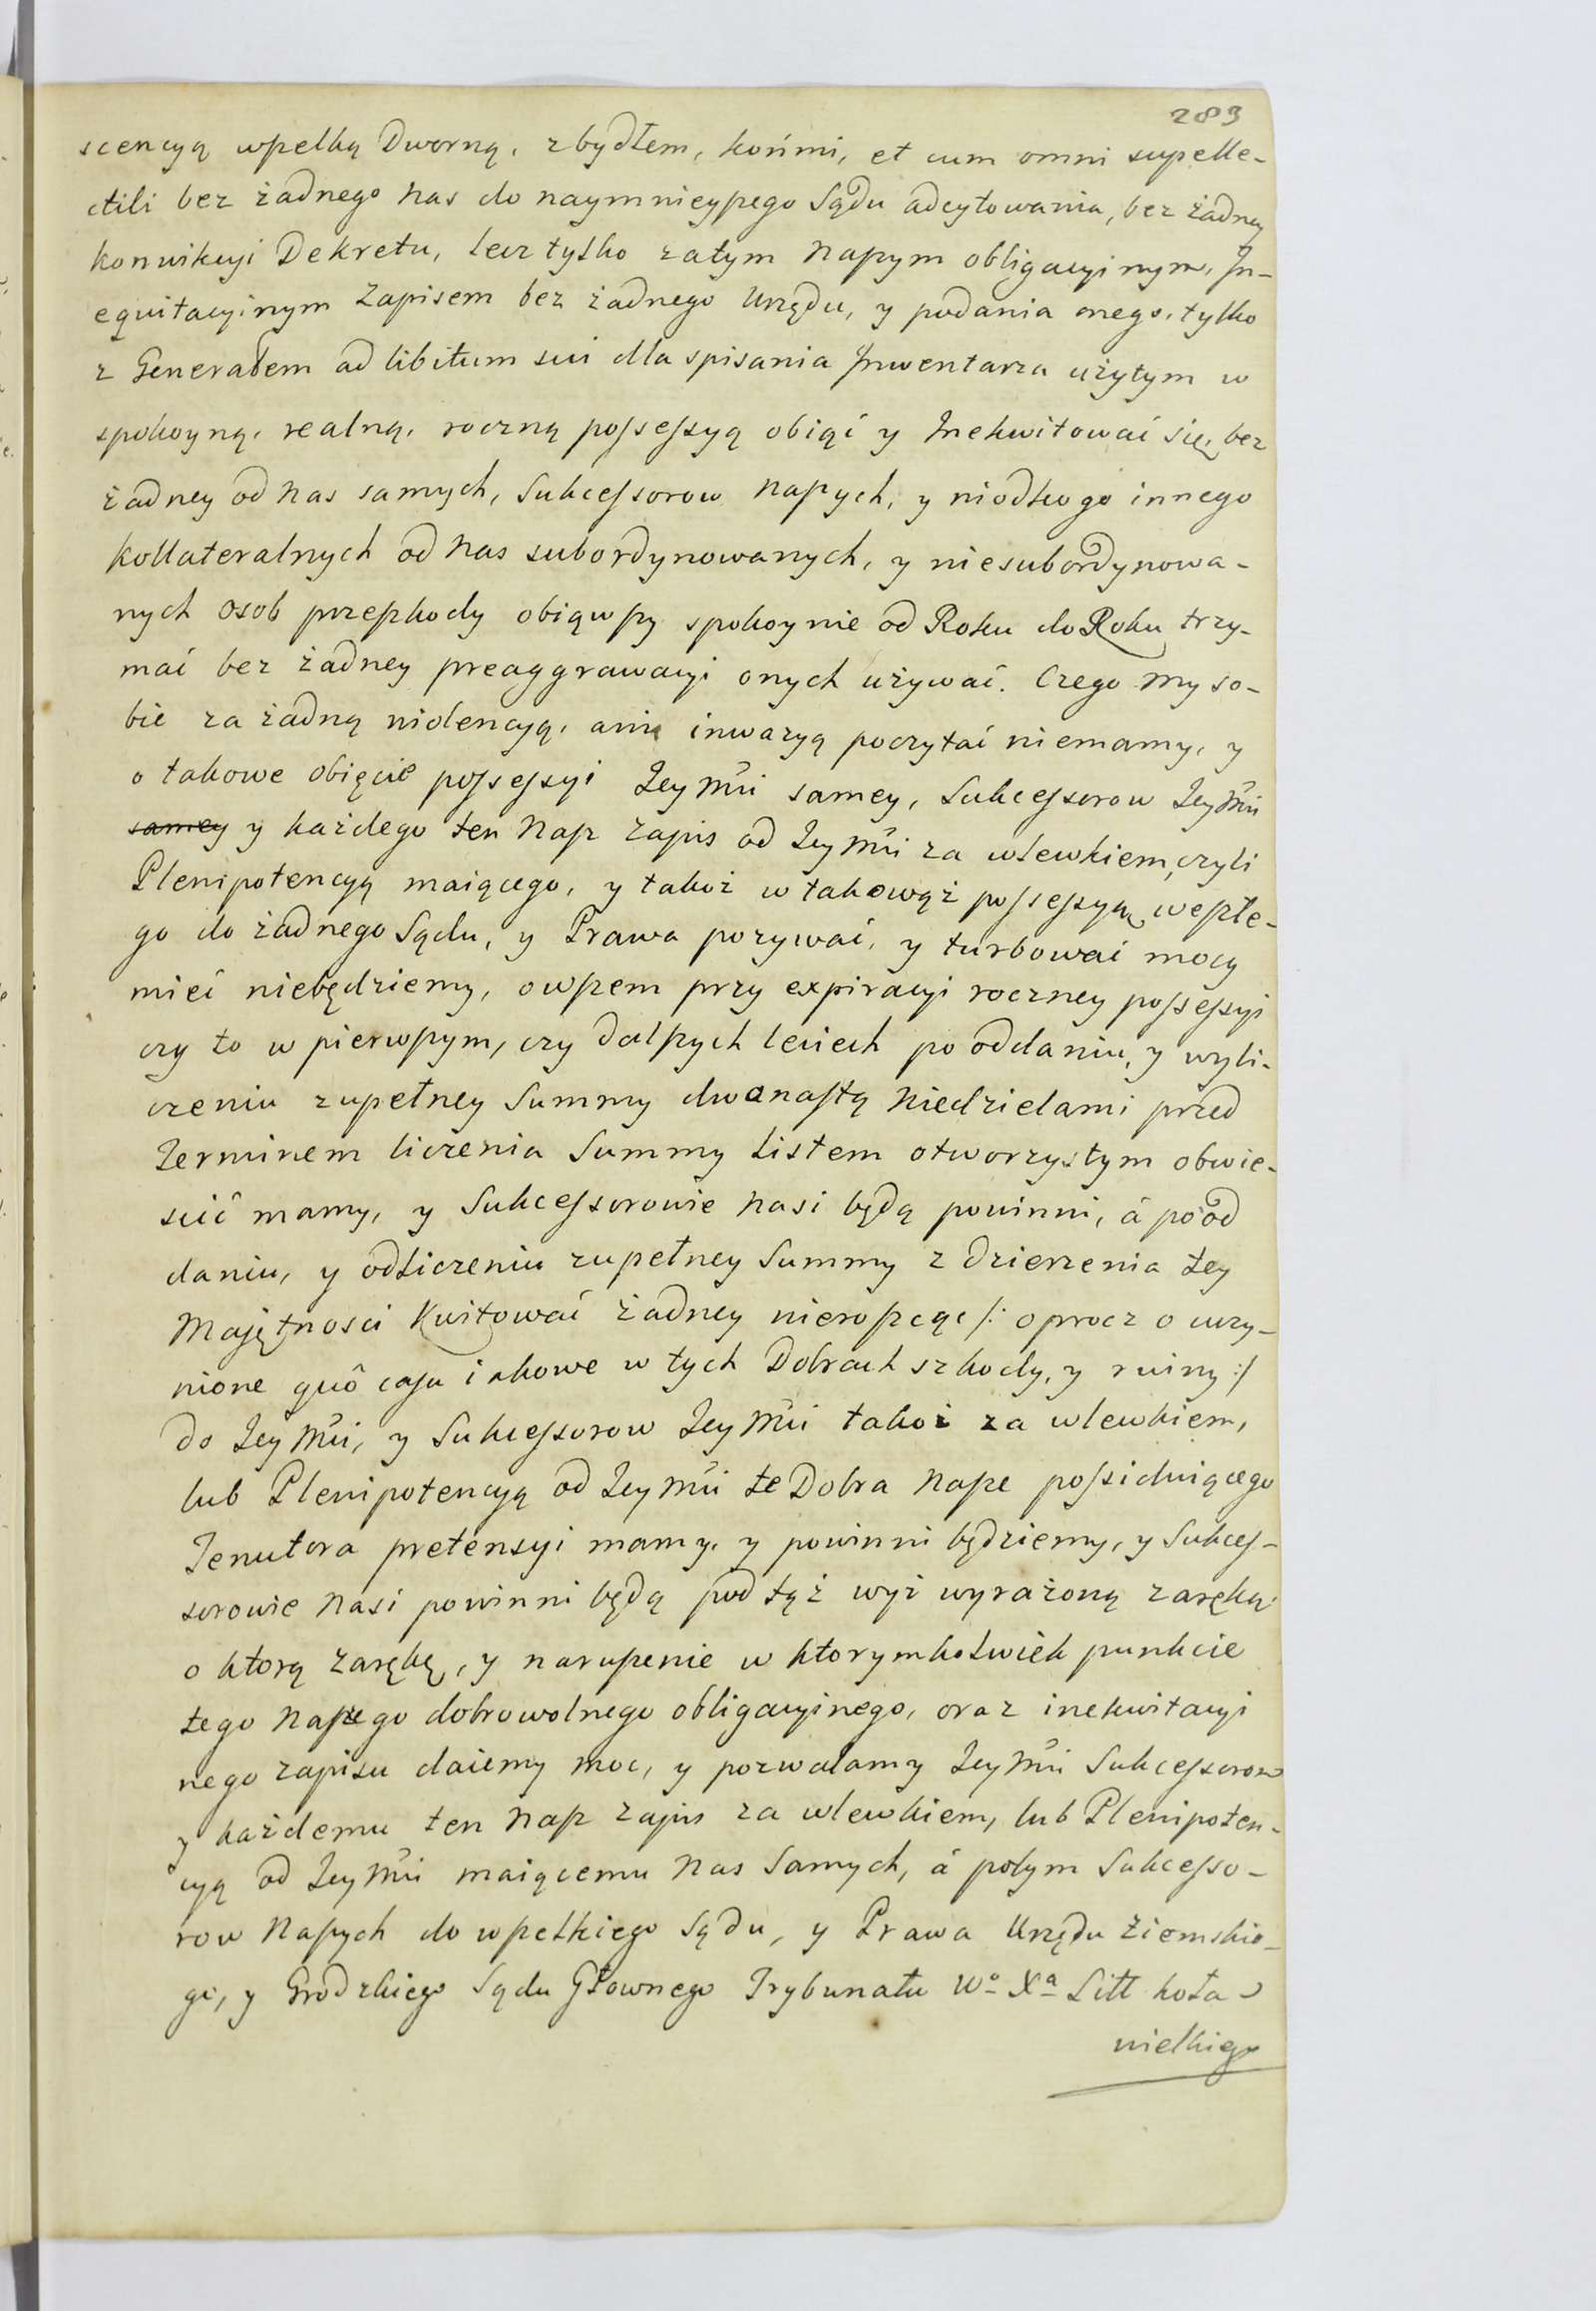 289
scencyą wszelką Dworną, z bydłem, końmi, et cum omni supelle-
ctili bez żadnego nas do naymnieyszego Sądu adcytowania, bez żadney
konwikcyi Dekretu, lecz tylko zatym naszym obligacyinym, In-
equitacyinym Zapisem bez żadnego Urzędu, y podania onego, tylko
z Generałem ad libitum sui dla spisania Inwentarza użytym w
spokoyną, realną, roczną possessyą obiąć y Inekwitować się, bez
żadney od nas samych, Sukcessorow naszych, y niodkogo innego
kollateralnych od nas subordynowanych, y niesubordynowa-
nych osob przeszkody obiąwszy spokoynie od Roku do Roku trzy-
mać bez żadney preaggrawacyi onych używać. Czego my so-
bie za żadną violencyą, ani inwazyą poczytać niemamy, y
o takowe obięcie possessyi Jey Mći samey, Sukcessorow Jey Mći
samey y każdego ten nasz zapis od Jey Mći za wlewkiem, czyli
Plenipotencyą maiącego, y takoż w takowąż possessyą weszłe-
go do żadnego Sądu, y Prawa pozywać, y turbować mocy
mieć niebędziemy, owszem przy expiracyi roczney possessyi
czy to w pierwszym, czy dalszych leciech po oddaniu, y wyli-
czeniu zupełney Summy dwanastą niedzielami przed
Terminem liczenia Summy Listem otworzystym obwie-
scić mamy, y Sukcessorowie nasi będą powinni, á po od
daniu, y odliczeniu zupełney Summy z dzierzenia tey
Majętnosci Kwitować żadney nieroszcąc /: oprocz o uczy-
nione quô casu iakowe w tych Dobrach szkody, y ruiny :/
do Jey Mći, y Sukcessorow Jey Mći takoż za wlewkiem,
lub Plenipotencyą od Jey Mći te Dobra nasze possiduiącego
Tenutora pretensyi mamy, y powinni będziemy, y Sukces-
sorowie nasi powinni będą pod tąż wyż wyrażoną zaręką
o ktorą zarękę, y naruszenie w ktorymkolwiek punkcie
tego naszego dobrowolnego obligacyinego, oraz inekwitacyi
nego zapisu daiemy moc, y pozwalamy Jey Mći Sukcessorow
y każdemu ten nasz zapis za wlewkiem, lub Plenipoten-
cyą od Jey Mći maiącemu nas samych, á potym Sukcesso-
row naszych do wszelkiego Sądu, y Prawa Urzędu Ziemskie-
go, y Grodzkiego Sądu Głownego Trybunału Wº Xª Litt koła
wielkiego